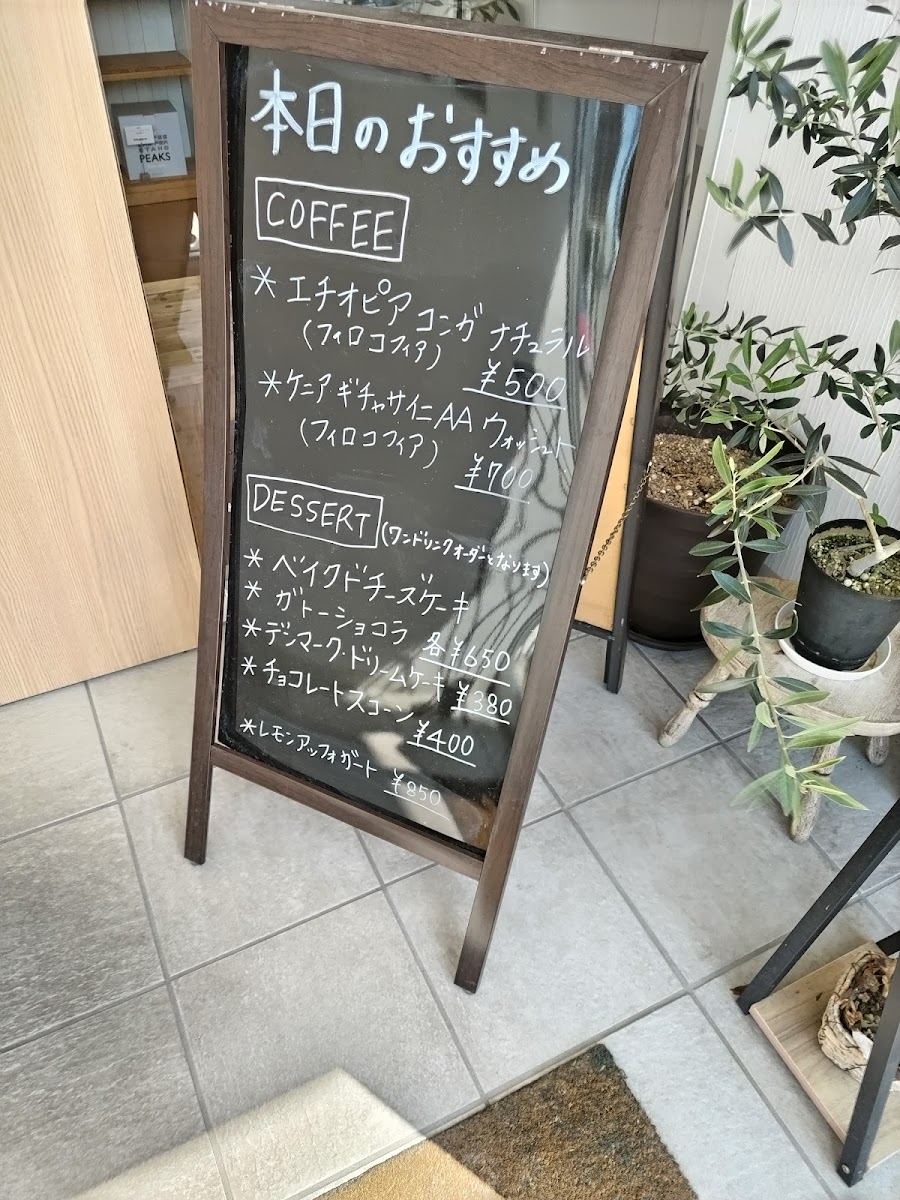 本日のおすすめ
COFFEE
* エチオピア コンガ ナチュラル
(フィロコフィア)
¥500
* ケニア ギチャサイニAA ウォッシュト
(フィロコフィア)
¥700
DESSERT (ワンドリンクオーダーとなります)
* ベイクドチーズケーキ
* ガトーショコラ 各¥650
* デンマーク・ドリームケーキ ¥380
* チョコレートスコーン ¥400
* レモンアッフォガート ¥850
PEAKS